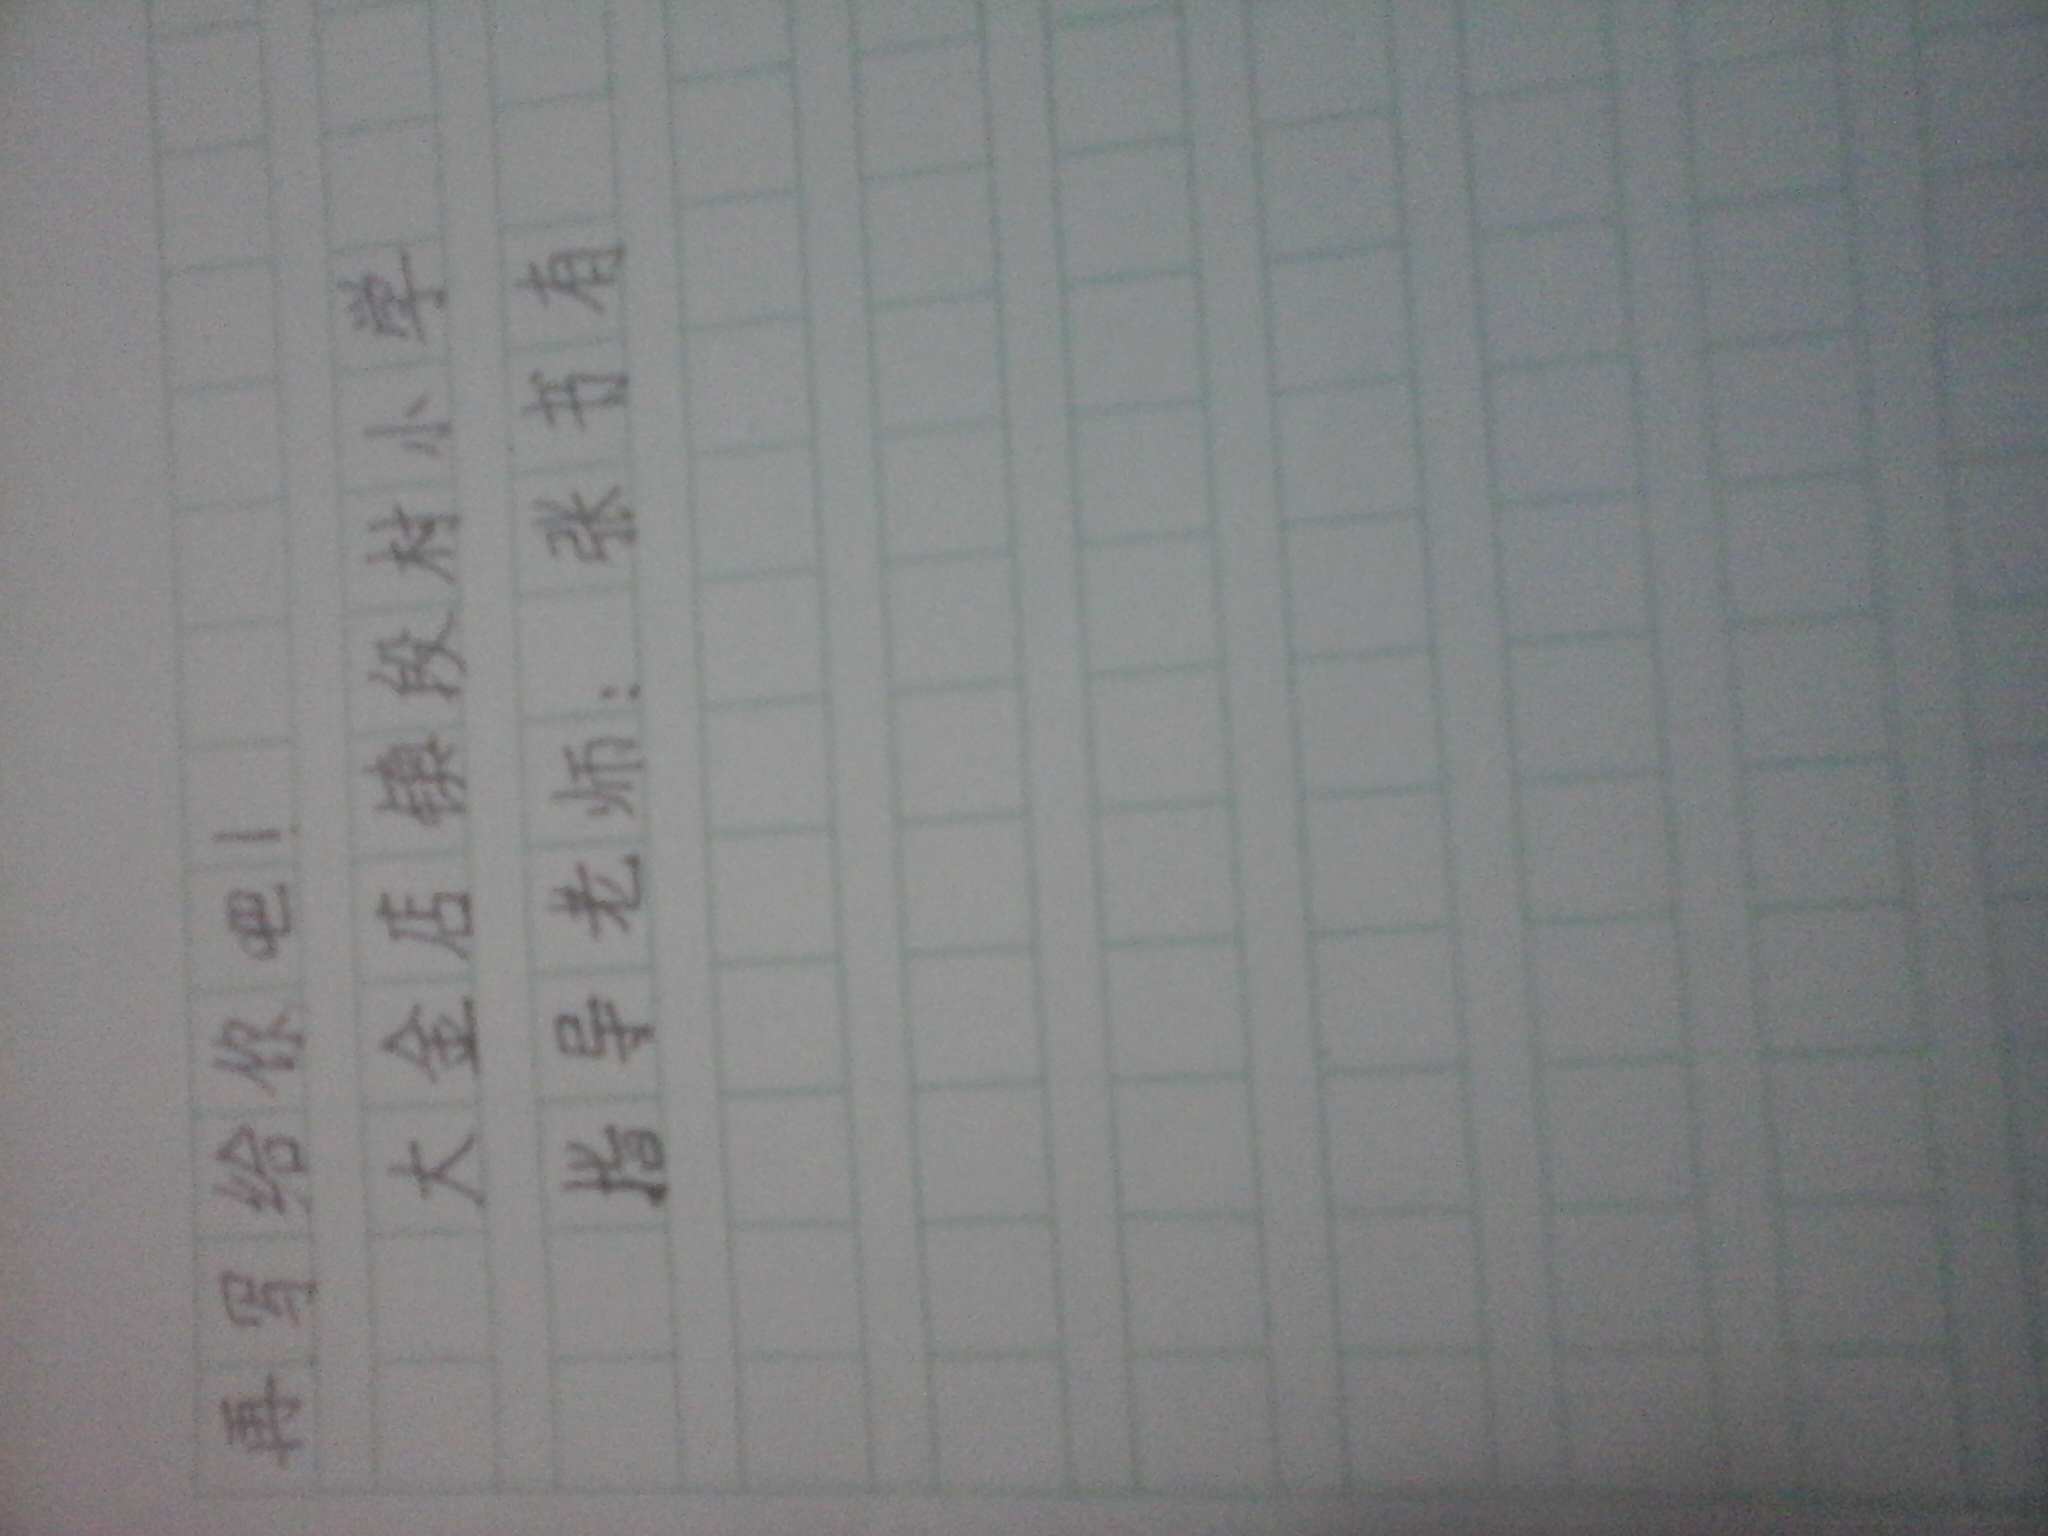 再写给你吧！
大金店镇段村小学
指导老师：张书有